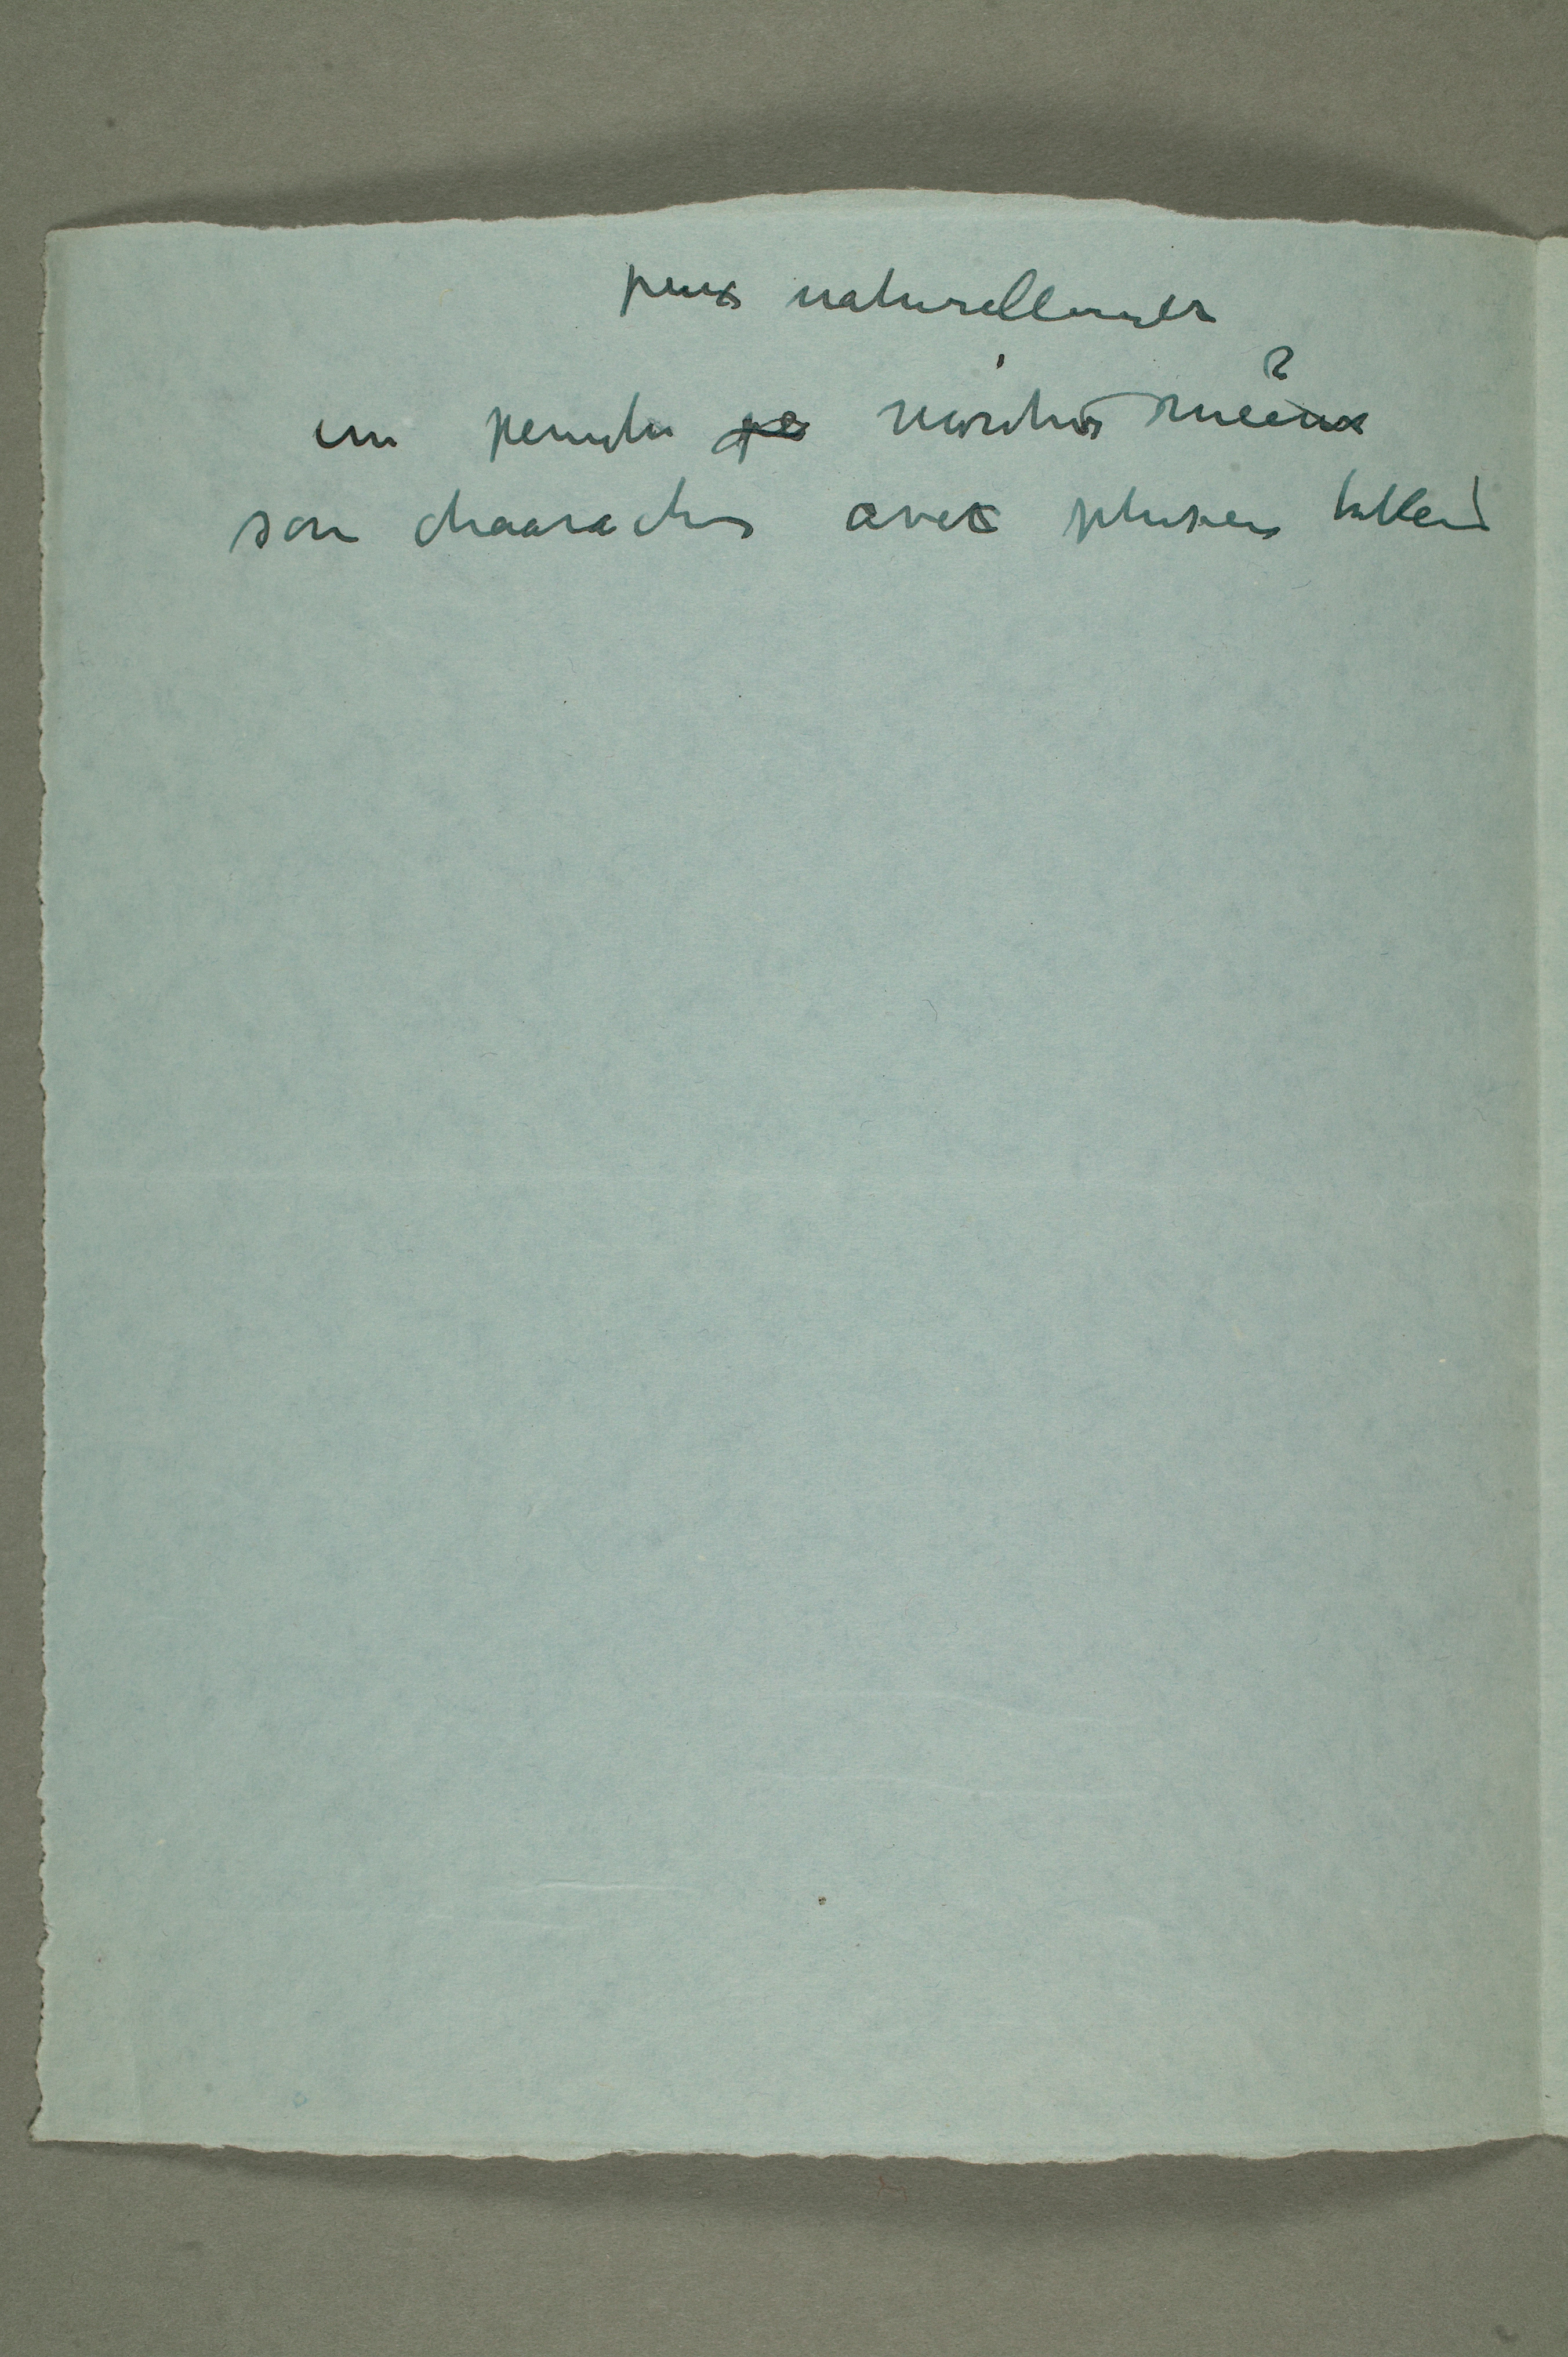 peux naturellement
un peintre montrer mieux
son chaaracter avec plusieurs tableau